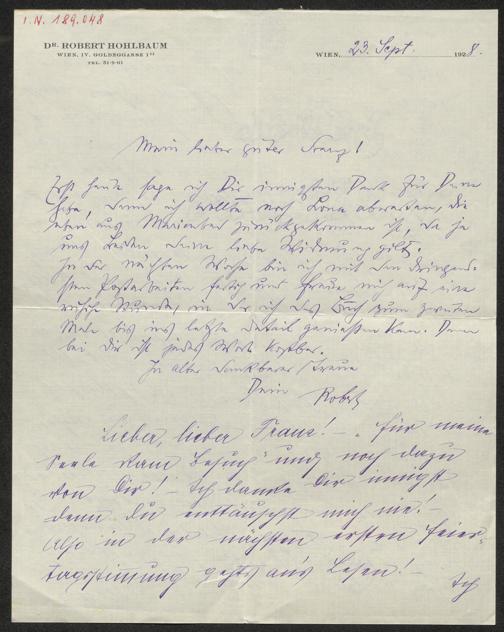 I.N. 189.048
DR. ROBERT HOHLBAUM
WIEN, IV. GOLDEGGASSE 1
TEL. 51-9-61
WIEN, 23. Sept. 1928.
Mein lieber guter Franz!
Erst heute sage ich Dir innigsten Dank für Deine
Gabe, denn ich wollte noch abwarten, die
eben aus Marienbad zurückgekommen ist, da ja
uns beiden Deine liebe Widmung gilt.
In der nächsten Woche bin ich mit den dringend-
sten Postarbeiten fertig und freue mich auf eine
ruhige Stunde, in der ich das Buch zum zweiten
Male bis ins letzte Detail genießen kann. Denn
bei Dir ist jedes Wort kostbar.
In alter dankbarer Treue
Dein Robert
Lieber, lieber Franz! – für meine
Seele kam Besuch" und noch dazu
von Dir! – Ich danke Dir innigst
denn du enttäuschst mich nie! –
Also in der nächsten ersten Feier-
tagsstimmung geht's an's Lesen! –